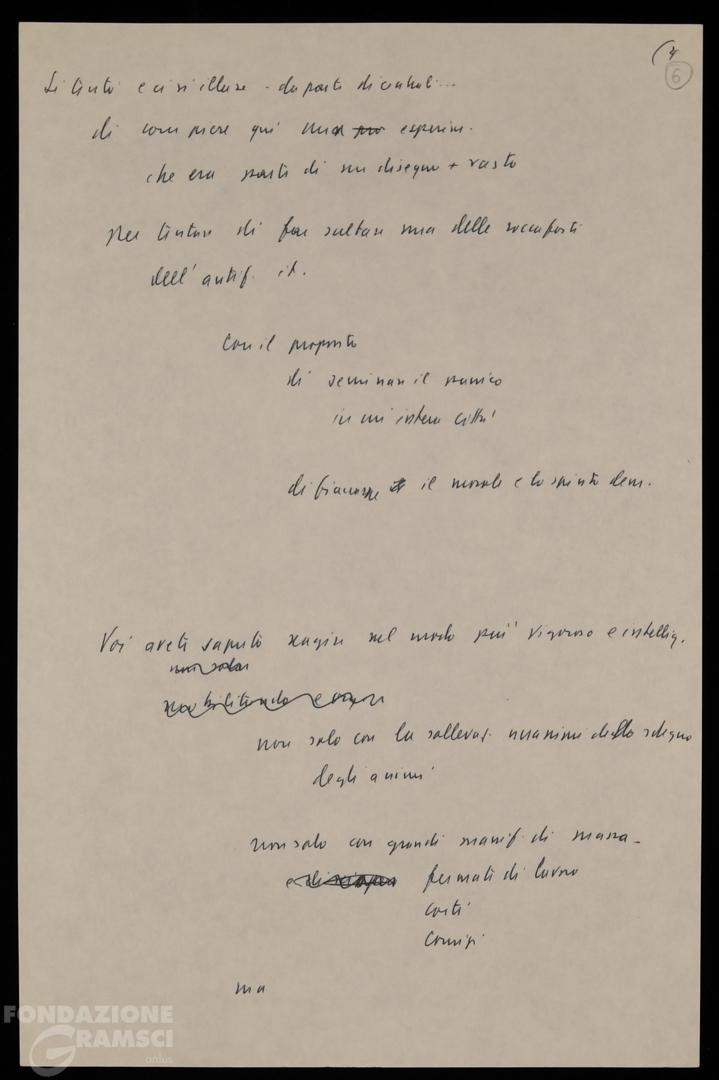 (4
6
Si tentò e ci si illuse - da parte di centrali...
di compiere qui una pro esperim.
che era parte di un disegno + vasto
per tentare di far saltare una delle roccaforti
dell'antif. it.
Con il proposito
di seminare il panico
in un'intera città
di fiaccare il morale e lo spirito dem.
Voi avete saputo reagire nel modo più vigoroso e intellig.
non solo
non solo con la sollevaz. unanime dello sdegno
degli animi
non solo con grandi manif. di massa -
e di fermate di lavoro
cortei
Comizi
ma
FONDAZIONE
GRAMSCI
onlus